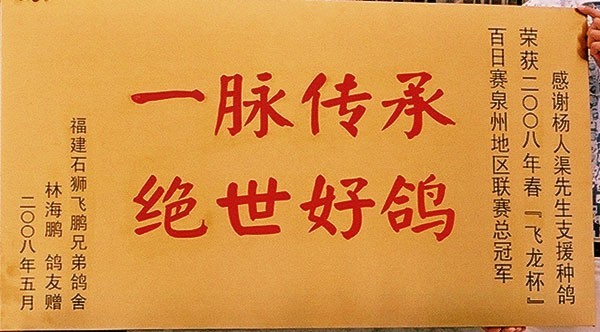 感谢杨人渠先生支援种鸽
荣获二〇〇八年春『飞龙杯』
百日赛泉州地区联赛总冠军
一脉传承
绝世好鸽
福建石狮飞鹏兄弟鸽舍
林海鹏 鸽友赠
二〇〇八年五月